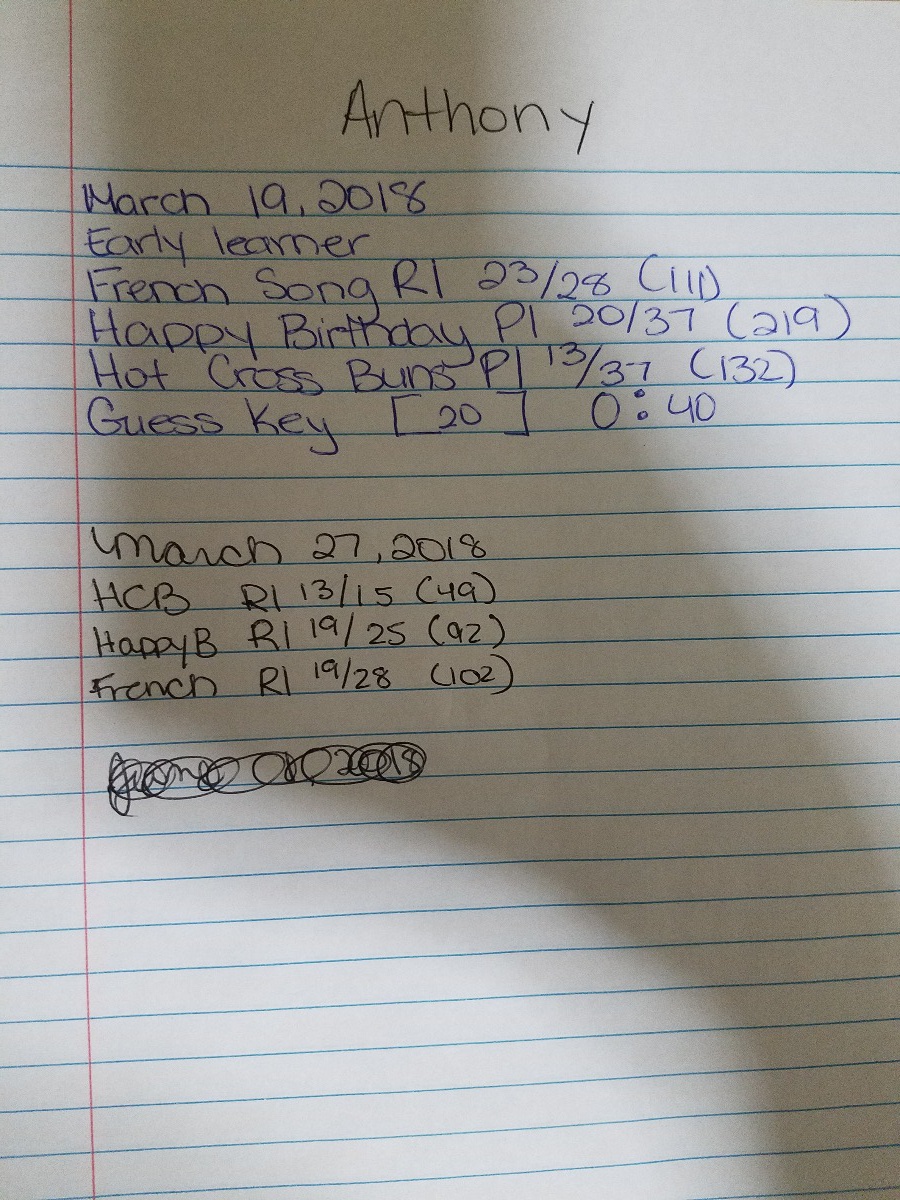 Anthony
March 19, 2018
Early learner
French Song R1 23/28 (111)
Happy Birthday P1 20/37 (219)
Hot Cross Buns P1 13/37 (132)
Guess Key [20] 0:40
March 27, 2018
HCB R1 13/15 (49)
HappyB R1 19/25 (92)
French R1 19/28 (102)